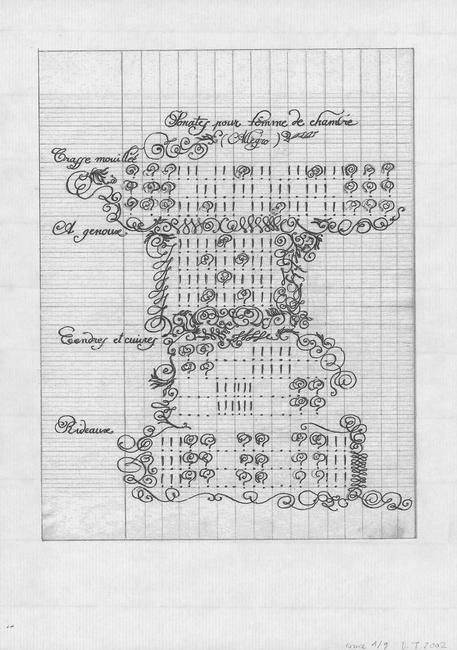 Sonates pour femme de chambre
(Allegro)
Crasse mouillée
A genoux
Cendres et cuivres
Rideaux
1/9 D.T. 2002